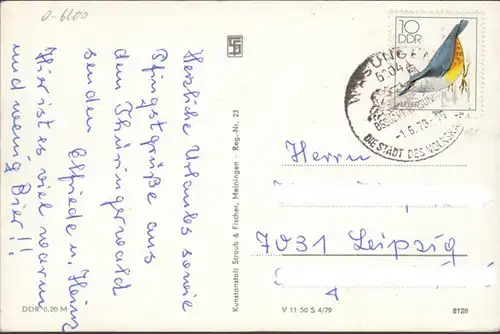 0-6100
Herzliche Urlaubs sowie
Pfingstgrüße aus
dem Thüringerwald
senden Elfriede u. Heinz
Hier ist es viel warm
und wenig Bier!!
DDR 0,20 M
Kunstanstalt Straub & Fischer, Meiningen · Reg.-Nr. 23
V 11 50 S 4/79
8128
10
DDR
WASUNGEN
-1.6.79
DIE STADT DES
Herrn
7031 Leipzig